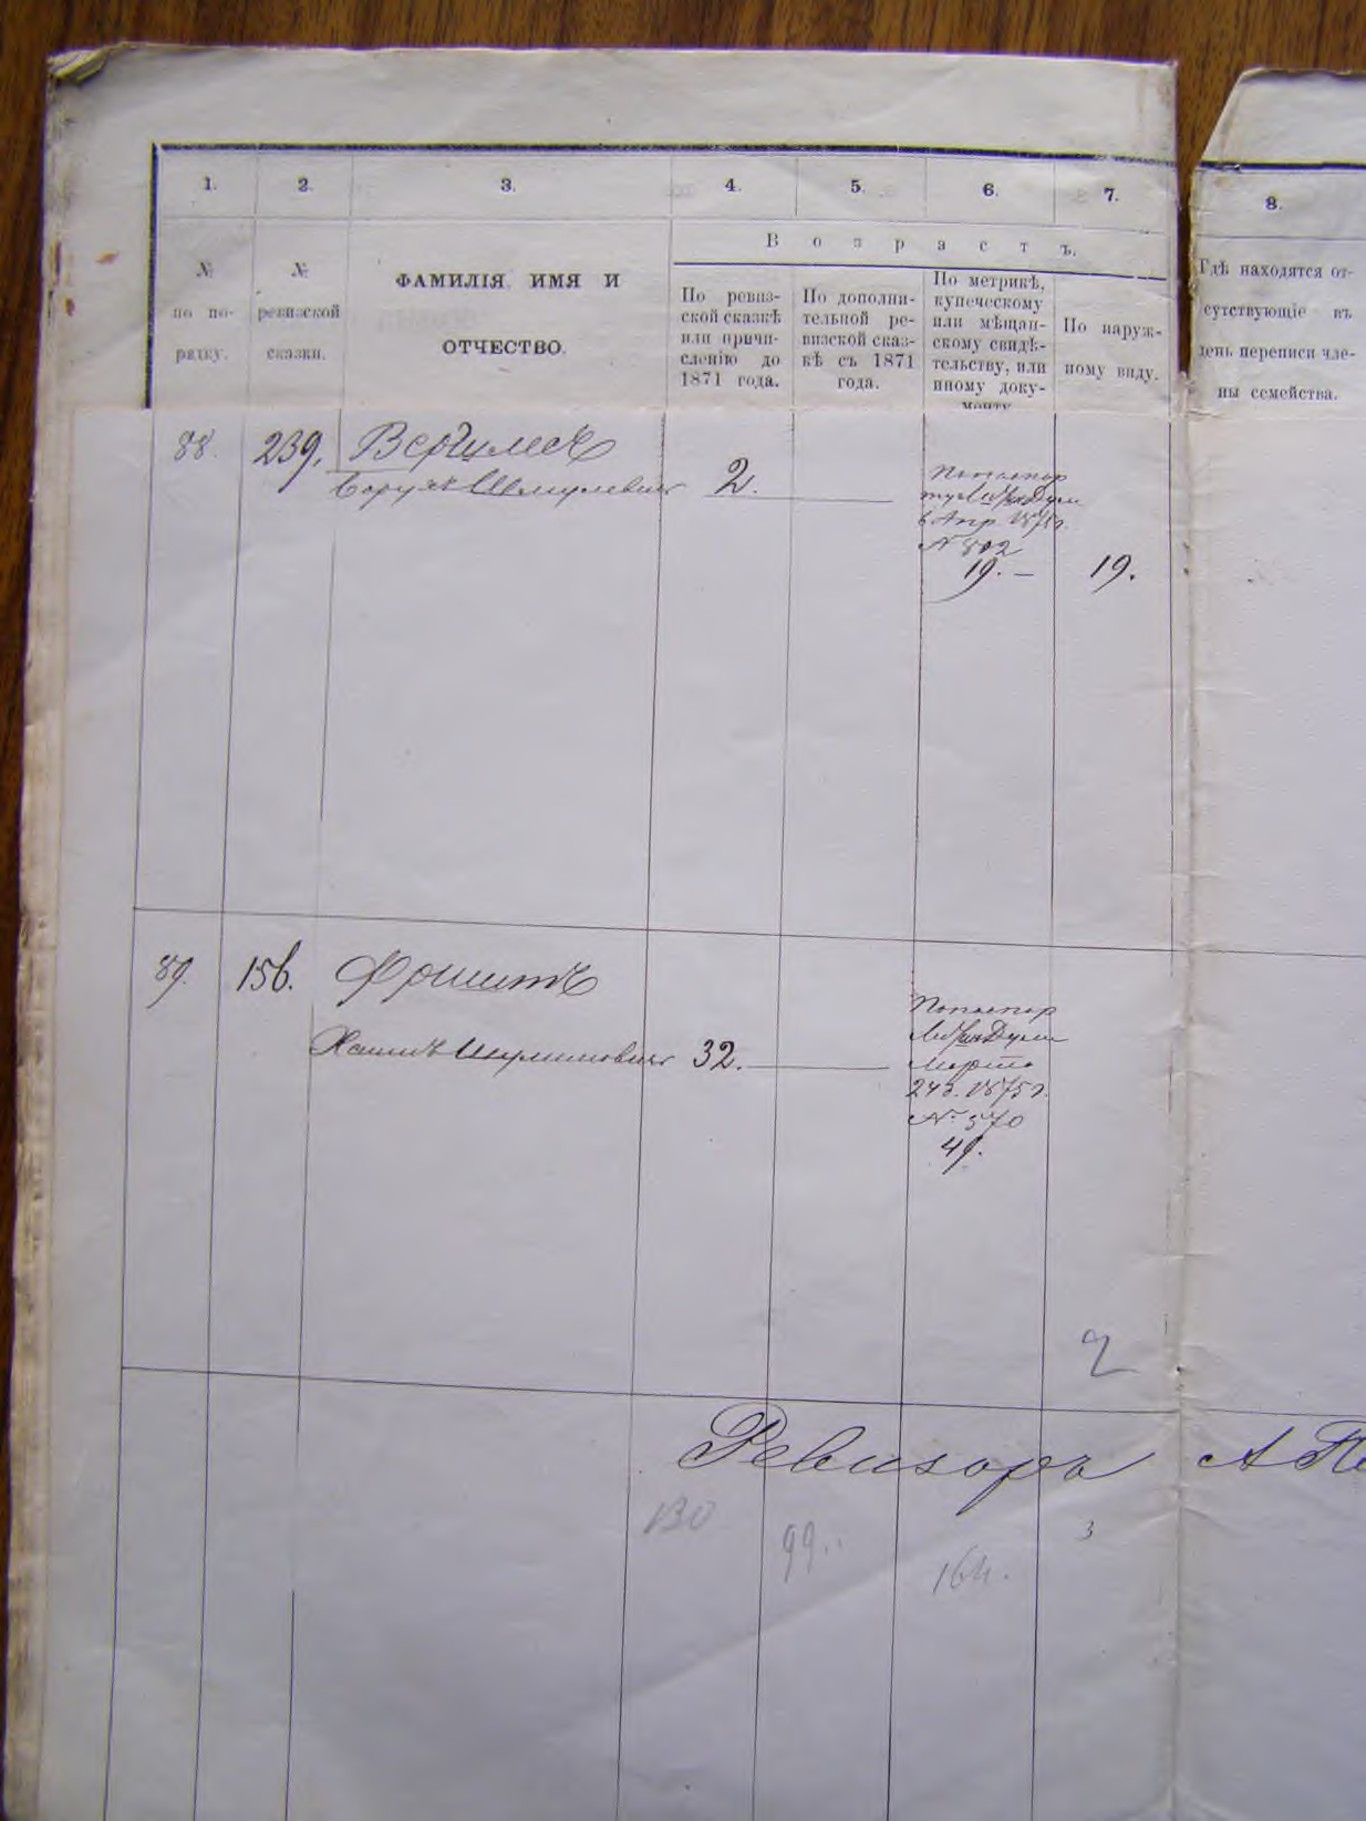 1.
2.
3.
4.
5.
6.
7.
8.
В о з р а с т ъ.
№
по по-
рядку.
№
ревизской
сказки.
ФАМИЛІЯ ИМЯ И
ОТЧЕСТВО.
По ревиз-
ской сказкѣ
или причи-
сленію до
1871 года.
По дополни-
тельной ре-
визской сказ-
кѣ съ 1871
года.
По метрикѣ,
купеческому
или мѣщан-
скому свидѣ-
тельству, или
иному доку-
менту
По наруж-
ному виду.
Гдѣ находятся от-
сутствующіе въ
день переписи чле-
ны семейства.
88.
239.
Борухъ Шмулевичъ
2.
По паспор
6 Апр 1875 г.
№ 802
19. —
19.
89.
156.
Шулимовичъ
32.
По паспор
Марта
24 д. 1875 г.
№ 570
49.
2
Ревизоръ А
130
99
164.
3